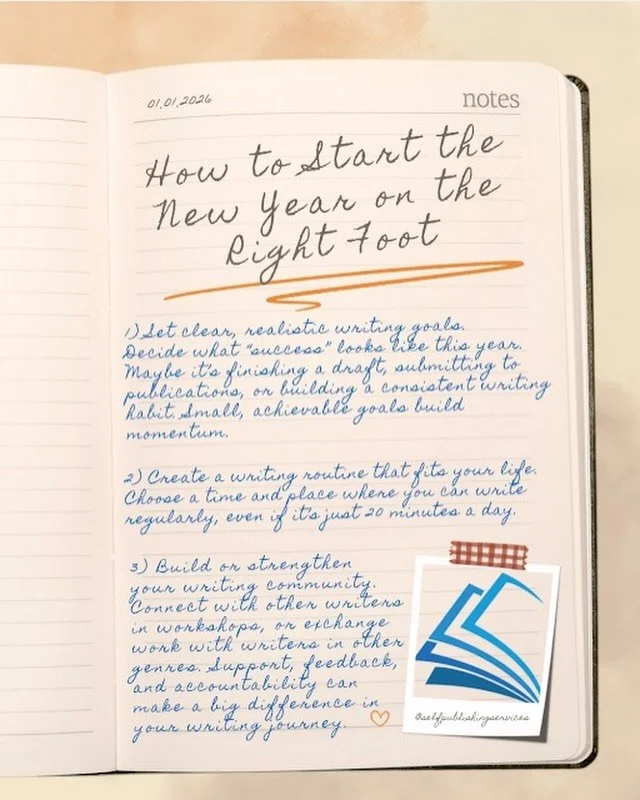 01.01.2026
notes
How to Start the
New Year on the
Right Foot
1) Set clear, realistic writing goals.
Decide what "success" looks like this year.
Maybe it's finishing a draft, submitting to
publications, or building a consistent writing
habit. Small, achievable goals build
momentum.
2) Create a writing routine that fits your life.
Choose a time and place where you can write
regularly, even if it's just 20 minutes a day.
3) Build or strengthen
your writing community.
Connect with other writers
in workshops, or exchange
work with writers in other
genres. Support, feedback,
and accountability can
make a big difference in
your writing journey.
@selfpublishingservices